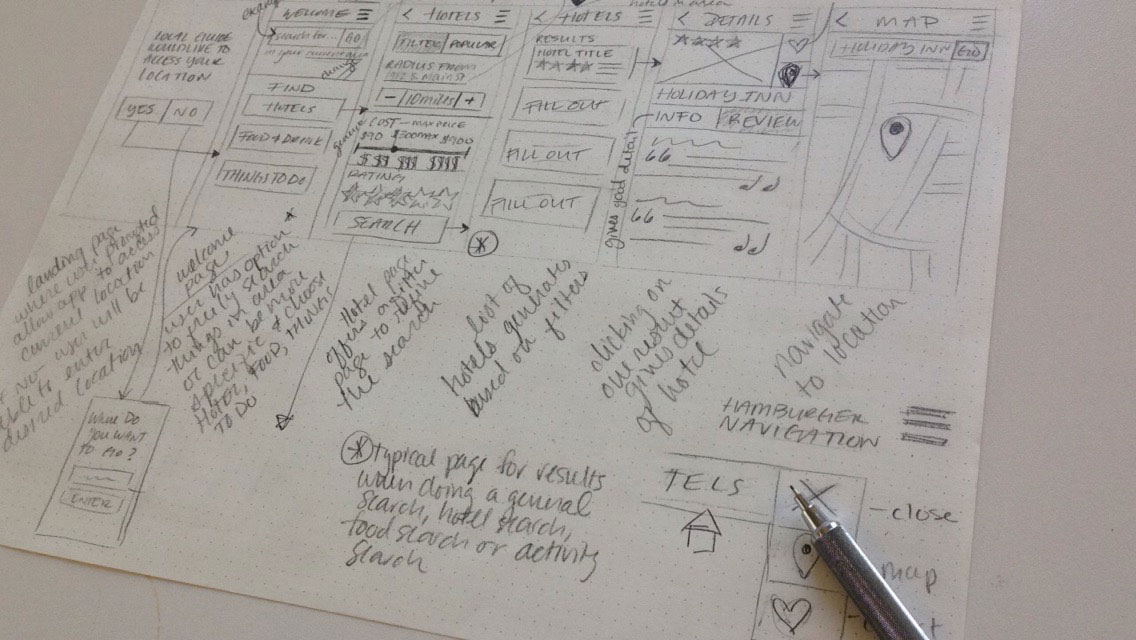 LOCAL GUIDE
WOULD LIKE TO
ACCESS YOUR
LOCATION
YES NO
example
WELCOME
search for... GO
in your current
FIND
HOTELS
FOOD & DRINK
THINGS TO DO
< HOTELS
FILTER POPULAR
RADIUS FROM
- 10 miles +
COST - MAX PRICE
$90 $300MAX
$ $$ $$$ $$$$
RATING
SEARCH
hotels in area
< HOTELS
RESULTS
HOTEL TITLE
FILL OUT
FILL OUT
FILL OUT
gives good detail
< DETAILS
HOLIDAY INN
INFO REVIEW
< MAP
HOLIDAY INN GO
landing page
where user prompted
allow app to access
current location
if no user will be
able to enter
desired location
welcome
page
user has option
to freely search
things in area
or can be more
specific & choose
HOTEL, FOOD, THINGS
TO DO
Hotel page
offers a filter
page to refine
the search
list of
hotels generates
based on filters
clicking on
one result
gives details
of hotel
navigate
to location
WHERE DO
YOU WANT
TO GO?
ENTER
* typical page for results
when doing a general
search, hotel search,
food search or activity
search
HAMBURGER
NAVIGATION
TELS
- close
map